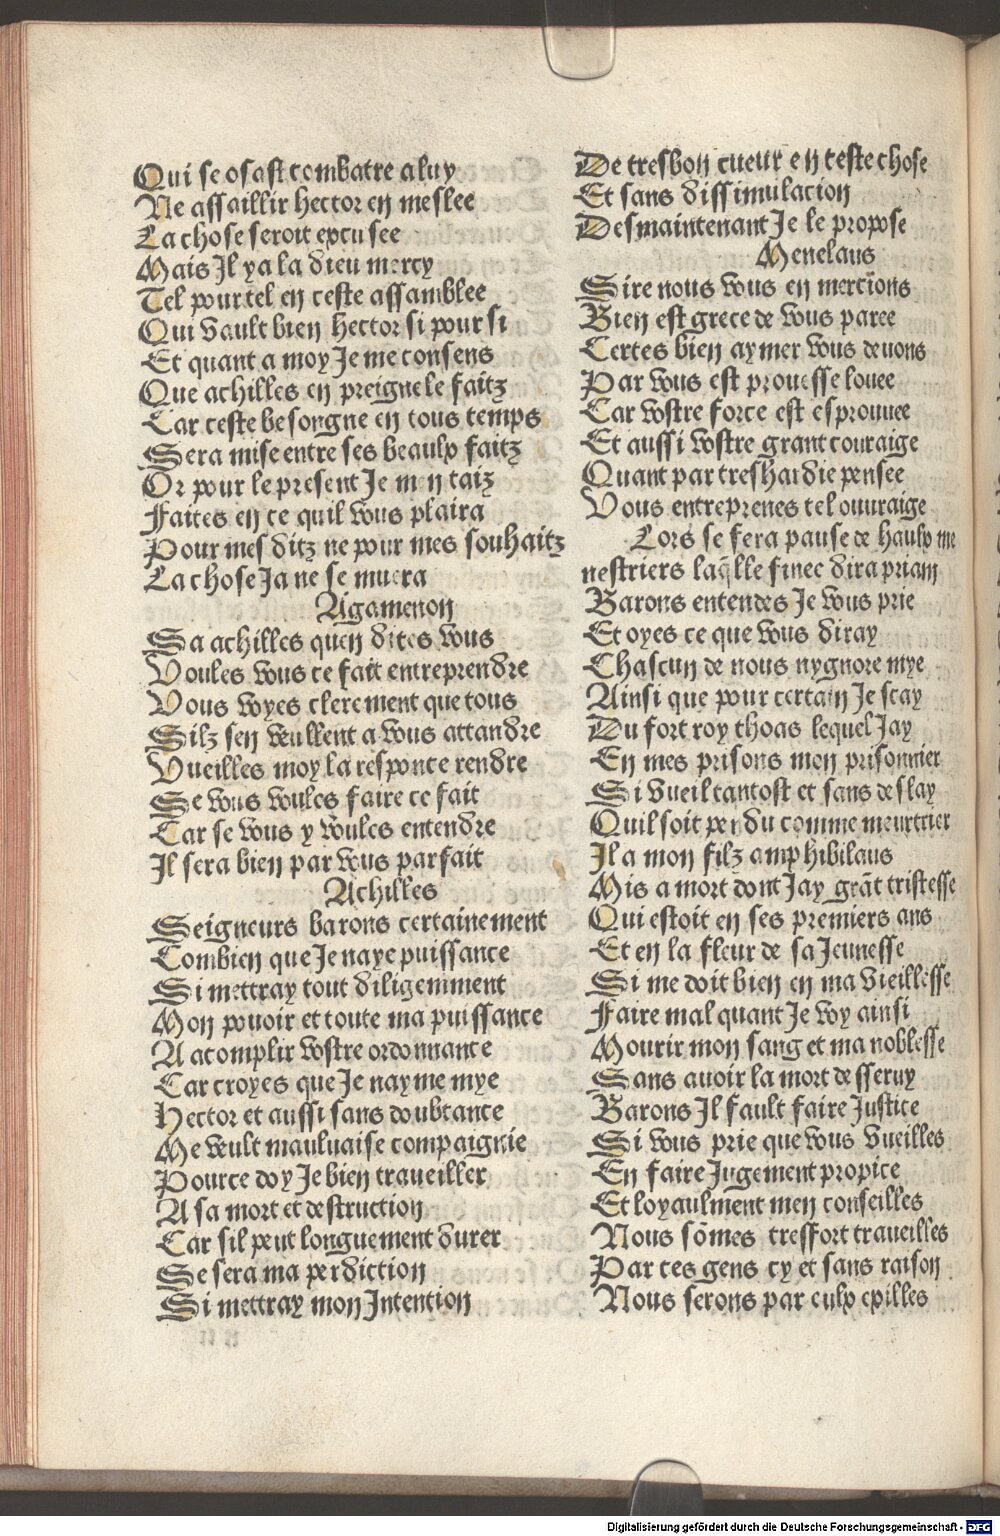 Qui se osast combatre a luy
Ne assaillir hector en meslee
La chose seroit excusee
Mais Il y a la dieu mercy
Tel pour tel en ceste assamblee
Qui vault bien hector si pour si
Et quant a moy Je me consens
Que achilles en preigne le faitz
Car ceste besongne en tous temps
Sera mise entre ses beaulx faitz
Or pour le present Je men taiz
Faites en ce quil vous plaira
Pour mes ditz ne pour mes souhaitz
La chose Ja ne se muera
Agamenon
Sa achilles quen dites vous
Voules vous ce fait entreprendre
Vous voyes clerement que tous
Silz sen veullent a vous attandre
Vueilles moy la responce rendre
Se vous voules faire ce fait
Car se vous y voules entendre
Il sera bien par vous parfait
Achilles
Seigneurs barons certainement
Combien que Je naye puissance
Si mettray tout diligemment
Mon pouoir et toute ma puissance
A acomplir vostre ordonnance
Car croyes que Je nayme mye
Hector et aussi sans doubtance
Me veult mauluaise compaignie
Pource doy Je bien traueiller
A sa mort et destruction
Car sil peut longuement durer
Se sera ma perdiction
Si mettray mon Intention
De tresbon cueur en ceste chose
Et sans dissimulacion
Desmaintenant Je le propose
Menelaus
Sire nous vous en mercions
Bien est grece de vous paree
Certes bien aymer vous deuons
Par vous est prouesse louee
Car vostre force est esprouuee
Et aussi vostre grant couraige
Quant par treshardie pensee
Vous entreprenes tel ouuraige
Lors se fera pause de haulx me
nestriers laq̄lle finee dira priam
Barons entendes Je vous prie
Et oyes ce que vous diray
Chascun de nous nygnore mye
Ainsi que pour certain Je scay
Du fort roy thoas lequel Jay
En mes prisons mon prisonnier
Si vueil tantost et sans deslay
Quil soit perdu comme meurtrier
Il a mon filz amphibilaus
Mis a mort dont Jay grāt tristesse
Qui estoit en ses premiers ans
Et en la fleur de sa Jeunesse
Si me doit bien en ma vieillesse
Faire mal quant Je voy ainsi
Mourir mon sang et ma noblesse
Sans auoir la mort desseruy
Barons Il fault faire Justice
Si vous prie que vous vueilles
En faire Jugement propice
Et loyaulment men conseilles
Nous sōmes tresfort traueilles
Par ces gens cy et sans raison
Nous serons par eulx exilles
Digitalisierung gefördert durch die Deutsche Forschungsgemeinschaft - DFG